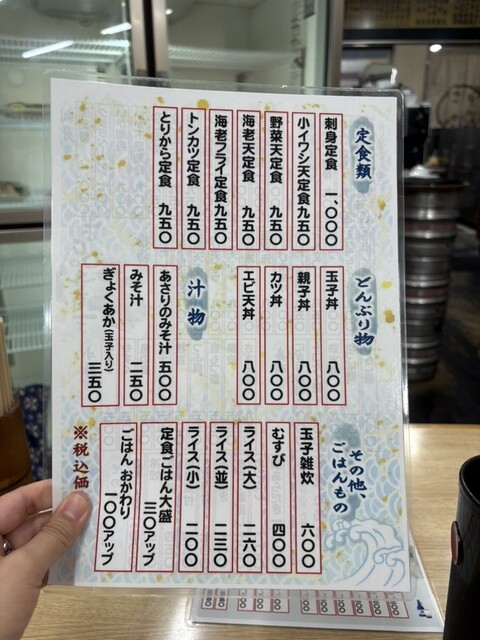 定食類
刺身定食 一、〇〇〇
小イワシ天定食 九五〇
野菜天定食 九五〇
海老天定食 九五〇
海老フライ定食 九五〇
トンカツ定食 九五〇
とりから定食 九五〇
どんぶり物
玉子丼 八〇〇
親子丼 八〇〇
カツ丼 八〇〇
エビ天丼 八〇〇
汁物
あさりのみそ汁 五〇〇
みそ汁 二五〇
ぎょくあか(玉子入り) 三五〇
その他、
ごはんもの
玉子雑炊 六〇〇
むすび 四〇〇
ライス(大) 二六〇
ライス(並) 二三〇
ライス(小) 二〇〇
定食ごはん大盛 三〇アップ
ごはん おかわり 一〇〇アップ
※税込価